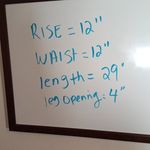 RISE = 12"
WAIST = 12"
length = 29"
leg opening = 4"